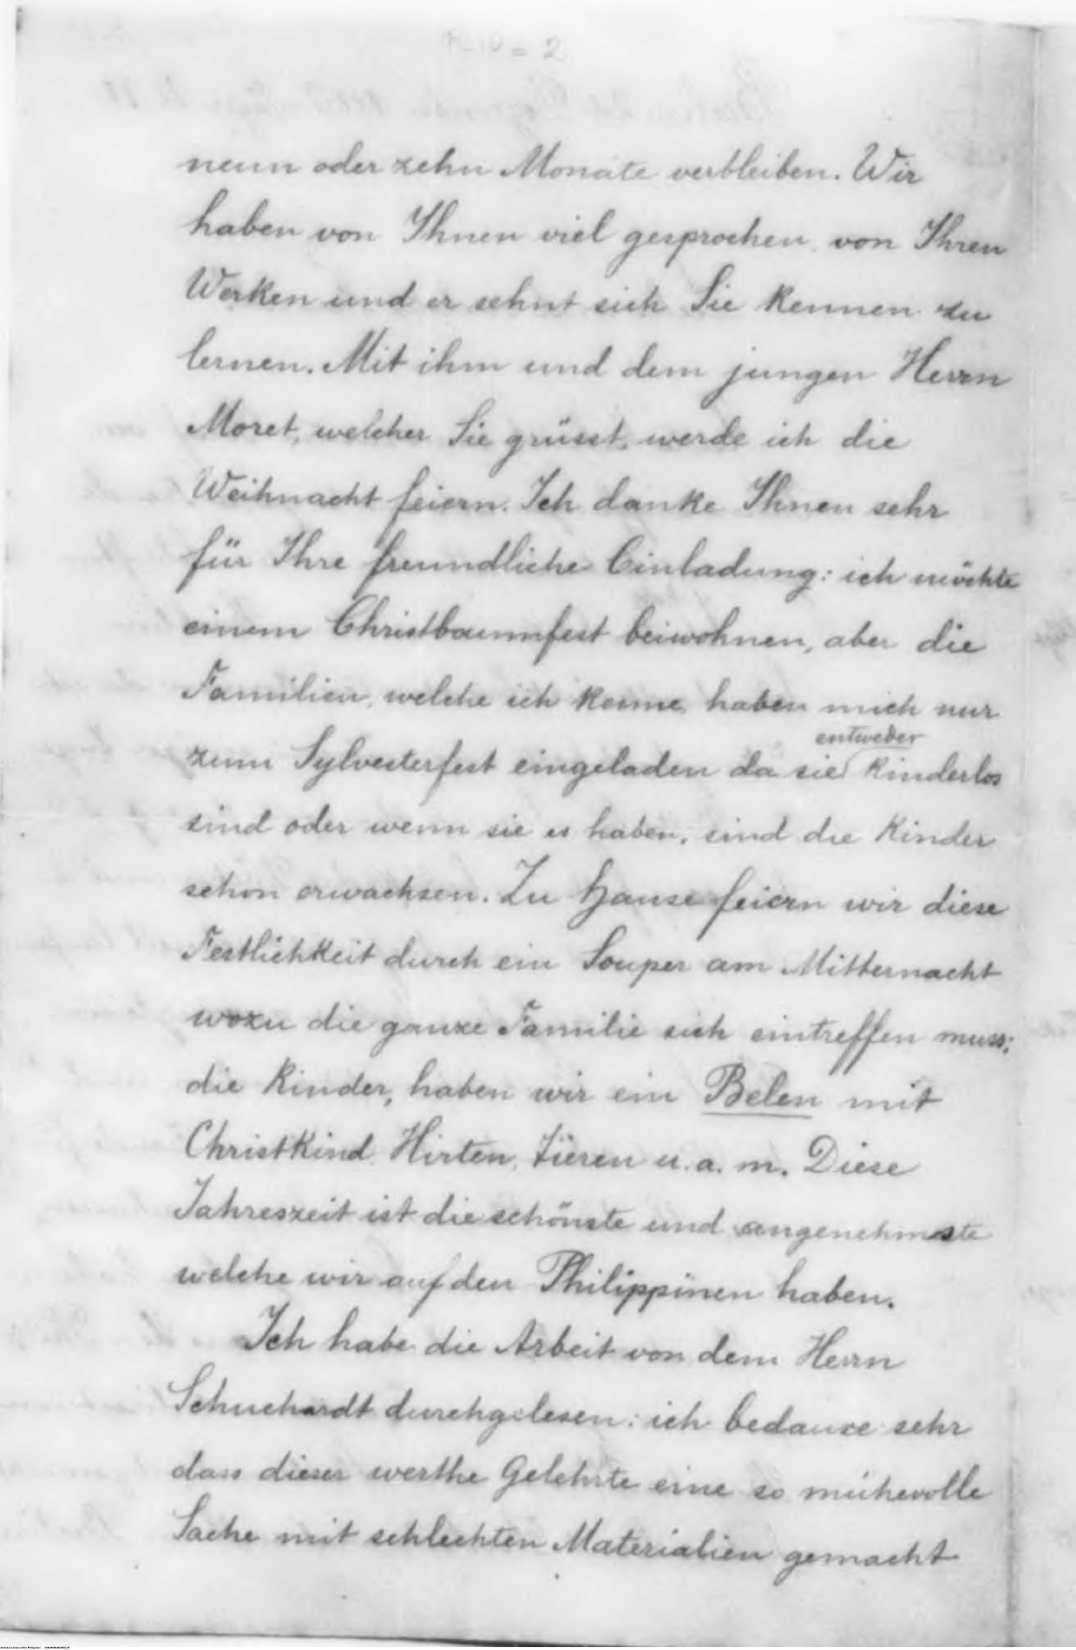 neun oder zehn Monate verbleiben. Wir
haben von Ihnen viel gesprochen, von Ihren
Werken und er sehnt sich Sie kennen zu
lernen. Mit ihm und dem jungen Herrn
Moret, welcher Sie grüsst, werde ich die
Weihnacht feiern. Ich danke Ihnen sehr
für Ihre freundliche Einladung: ich möchte
einem Christbaumfest beiwohnen, aber die
Familien, welche ich kenne, haben mich nur
entweder
zum Sylvesterfest eingeladen da sie kinderlos
sind oder wenn sie es haben, sind die Kinder
schon erwachsen. Zu Hause feiern wir diese
Festlichkeit durch ein Souper am Mitternacht
wozu die ganze Familie sich eintreffen muss;
die Kinder, haben wir ein Belen mit
Christkind, Hirten, Tieren u. a. m. Diese
Jahreszeit ist die schönste und angenehmste
welche wir auf den Philippinen haben.
Ich habe die Arbeit von dem Herrn
Schuchardt durchgelesen: ich bedaure sehr
dass dieser werthe Gelehrte eine so mühevolle
Sache mit schlechten Materialien gemacht